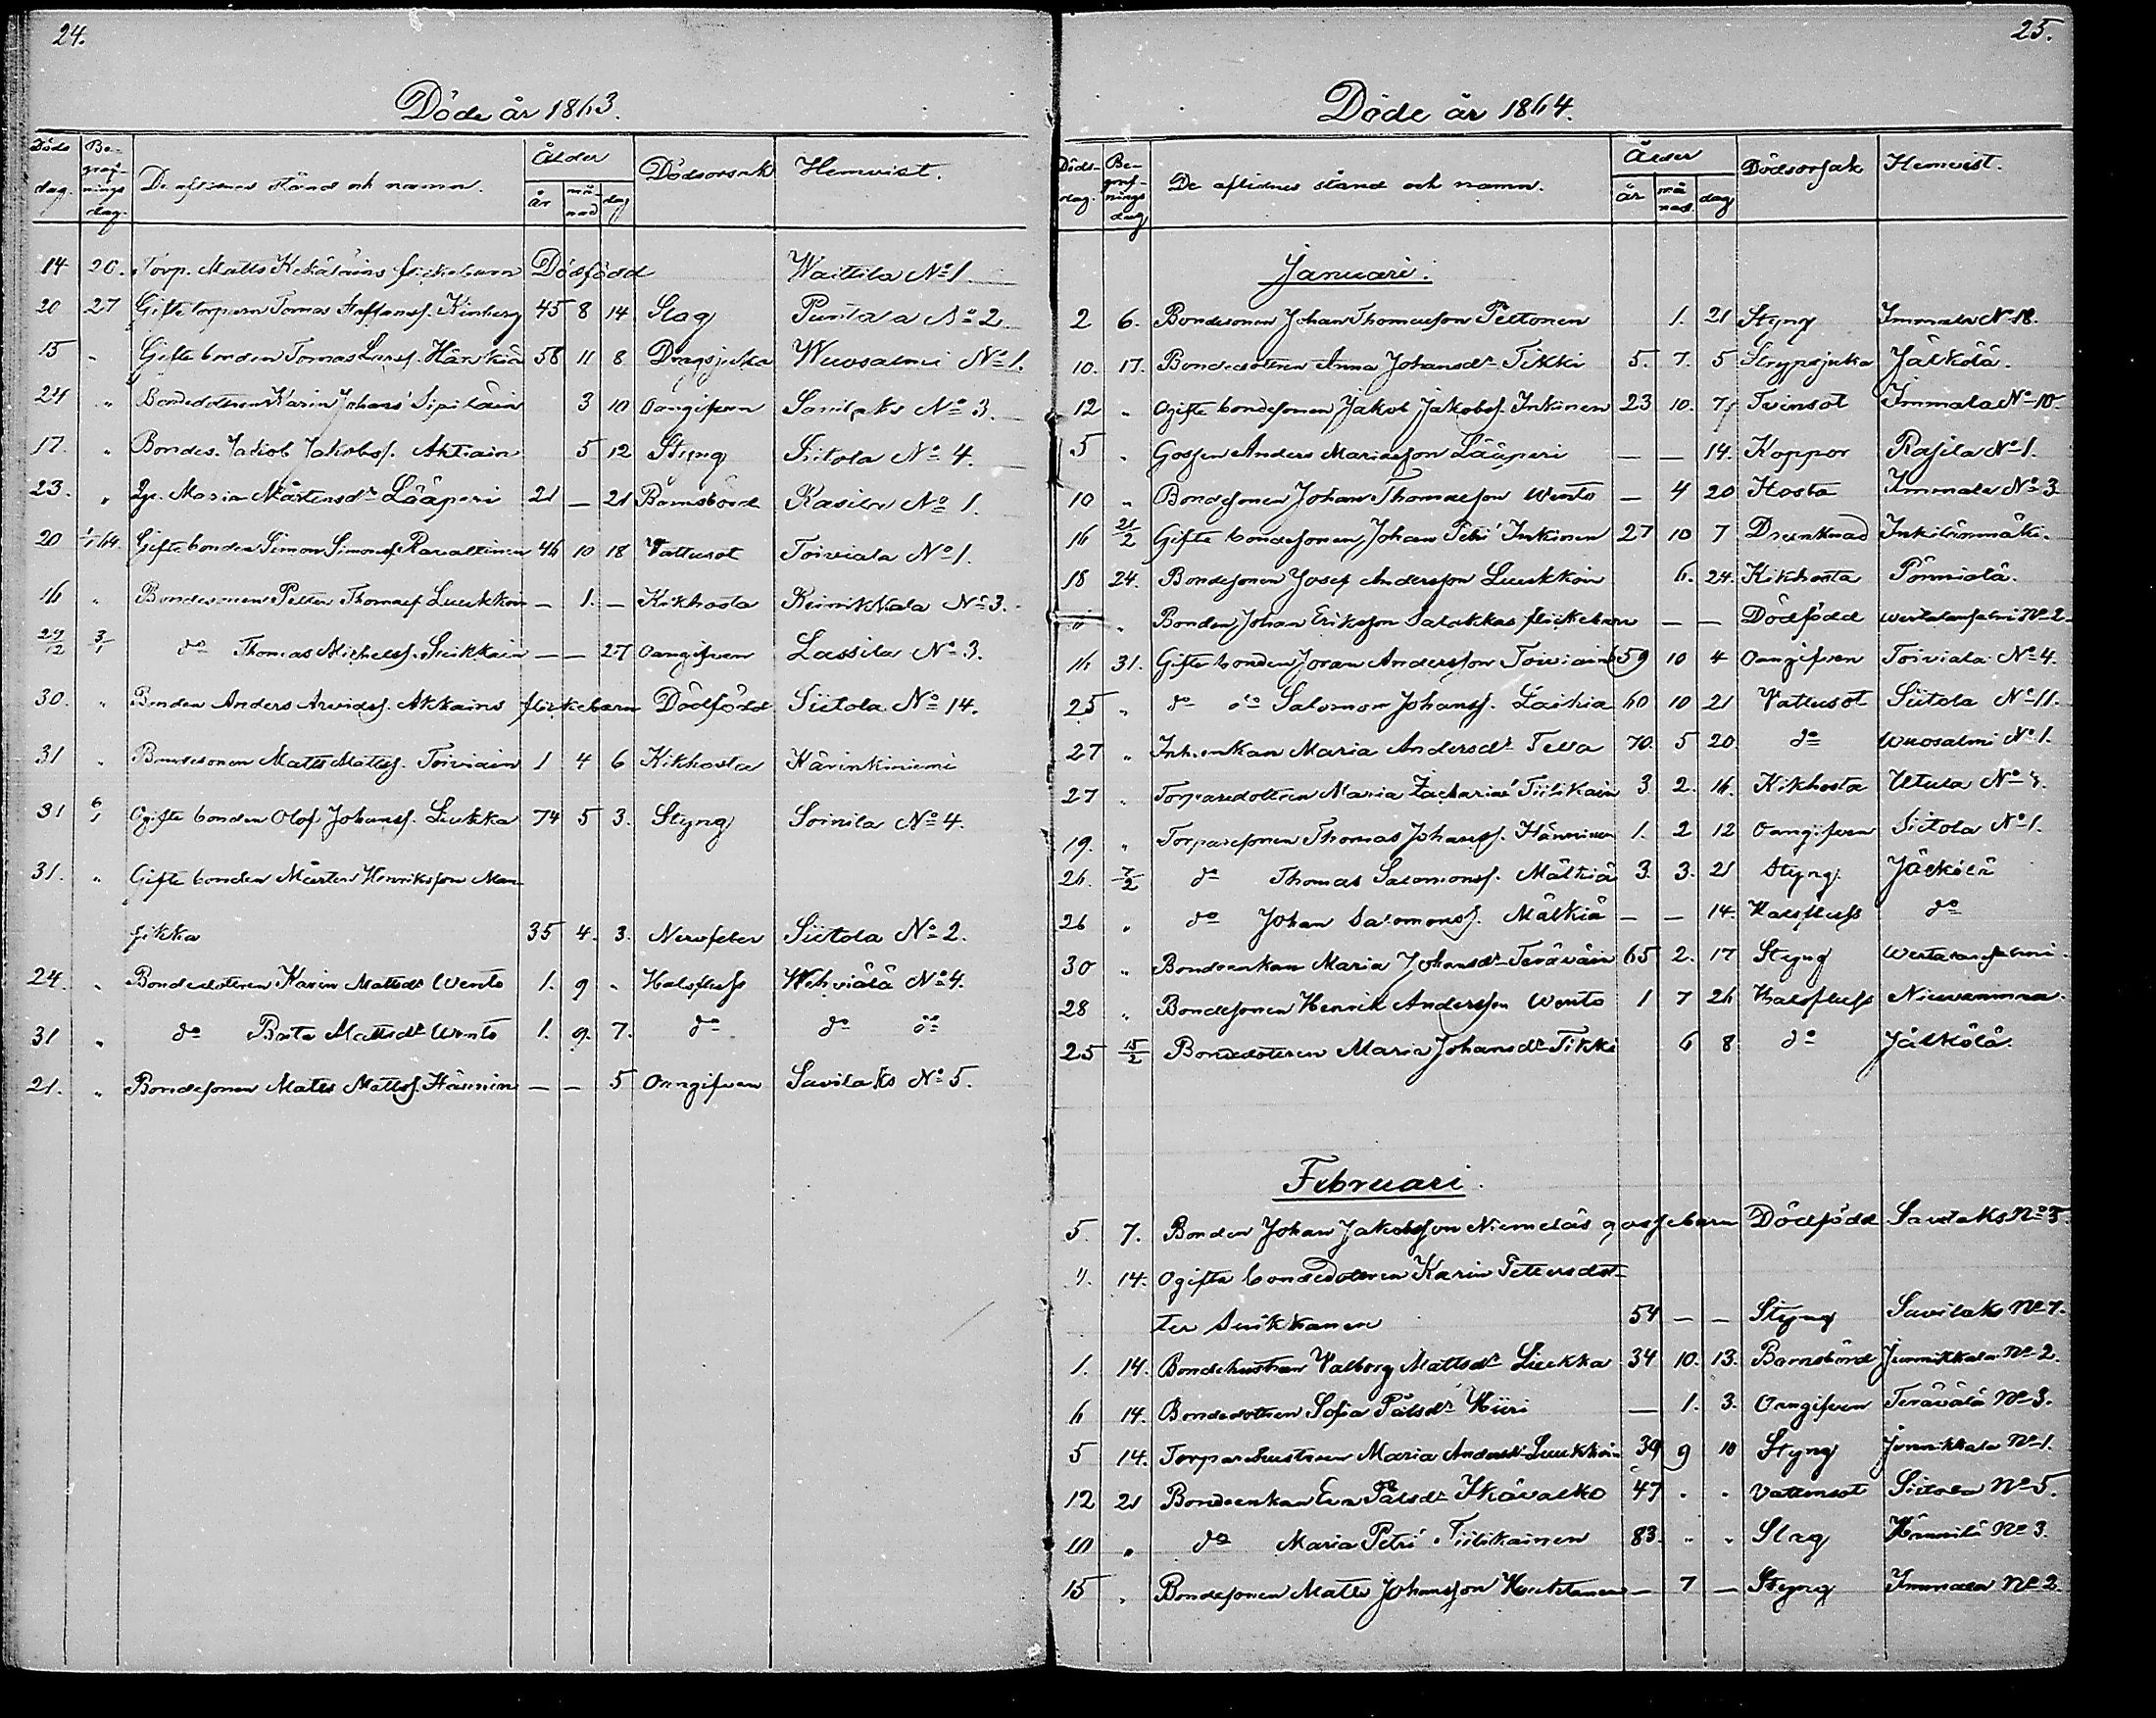 24.
Döde år 1863.
Döds dag. Begrafnings dag. De aflidnes stånd och namn. Ålder år månad dag Dödsorsak Hemvist.
14 20. Torp. Matts Kekäläins flickebarn Dödfödd Waittila No 1
20 27 Gifte torparen Tomas Staffanss. Kinberg 45 8 14 Slag Puntala No 2
15 " Gifte bonden Tomas Larss. Härskiä 58 11 8 Dragsjuka Wuosalmi No 1.
24 " Bondedottren Karin Johans' Sipiläin 3 10 Oangifven Savilaks No 3.
17. " Bondes. Jakob Jakobss. Aktiain 5 12 Styng Siitola No 4.
23. " Pig. Maria Mårtensdr Lääperi 21 — 21 Barnsbörd Rasila No 1.
20 1/1 64. Gifte bonden Simon Simonss. Ravattinen 46 10 18 Vattusot Toiviala No 1.
16 " Bondesonen Petter Thomass. Luukkoin — 1. — Kikhosta Kunikkala No 3.
29/12 3/1 do Thomas Michelss. Suikkain — — 27 Oangifven Lassila No 3.
30. " Bonden Anders Arvidss. Akkains flickebarn Dödfödd Siitola No 14.
31 " Bondesonen Matts Mattss. Toiviain 1 4 6 Kikhosta Härinkiniemi
31 6/1 Ogifte bonden Olof Johanss. Liukka 74 5 3. Styng Soinila No 4.
31. " Gifte bonden Mårten Henriksson Man-
sikka 35 4. 3. Nervfeber Siitola No 2.
24. " Bondedottren Karin Mattsdr Wento 1. 9 - Halsfluss Wehviälä No 4.
31 " do Beata Mattsdr Wento 1. 9. 7. do do do
21. " Bondesonen Matts Mattss. Hännin — — 5 Oangifven Savilaks No 5.
25.
Döde år 1864.
Döds- dag. Begrafnings dag De aflidnes stånd och namn. Ålder år månad. dag Dödsorsak Hemvist.
Januari.
2 6. Bondesonen Johan Thomasson Peltonen 1. 21 Styng Immala No 18.
10. 17. Bondedottren Anna Johansdr Tikki 5. 7. 5 Strypsjuka Jälkölä.
12 " Ogifte bondesonen Jakob Jakobss. Inkinen 23 10. 7 Tvinsot Immala No 10.
5 " Gossen Anders Mariasson Lääperi — — 14. Koppor Rasila No 1.
10 " Bondesonen Johan Thomasson Wento — 4 20 Hosta Immala No 3
16 21/2 Gifte bondesonen Johan Petri' Inkinen 27 10 7 Drunknad Inkilänmäki.
18 24. Bondesonen Josef Andersson Luukkoin 6. 24. Kikhosta Pönniälä.
" " Bonden Johan Eriksson Salakkas flickebarn — — Dödfödd No 2
16 31. Gifte bonden Joran Andersson Toiviain 59 10 4 Oangifven Toiviala No 4.
25 " do do Salomon Johanss. Laihia 60 10 21 Vattusot Siitola No 11.
27 " Inh. enkan Maria Andersdr Teva 70. 5 20. do Wuosalmi No 1.
27 " Torparedottren Maria Zacharias' Tiilikain 3 2. 16. Kikhosta Utula No 4.
19. " Torparesonen Thomas Johanss. Hänninen 1. 2 12 Oangifven Siitola No 1.
26. 7/2 do Thomas Salomonss. Mälkiä 3. 3. 21 Styng. Jälkölä
26 " do Johan Salomonss. Mälkiä — — 14. Halsfluss do
30 " Bondeenkan Maria Johansdr Teräväin 65 2. 17 Styng
28 " Bondesonen Henrik Andersson Wento 1 7 26 Halsfluss
25 15/2 Bondedottren Maria Johansdr Tikki 6 8 do Jälkölä.
Februari.
5. 7. Bonden Johan Jakobsson Niemeläs gossebarn Dödfödd Savilaks No 5.
". 14. Ogifta bondedottren Karin Petersdot-
ter Suikkanen 54 — — Styng Savilaks No 7.
1. 14. Bondehustrun Valborg Mattsdr Liukka 34 10. 13. Barnsbörd Junnikkala No 2.
6 14. Bondedottren Sofia Pålsdr Hiiri — 1. 3. Oangifven Teräválä No 3.
5 14. Torparehustrun Maria Andersdr Luukkoin 39 9 10 Styng Junnikkala No 1.
12 21 Bondeenkan Eva Pålsdr Ikävalko 47 " " Vattusot Siitola No 5.
10 " do Maria Petri' Tiilikainen 83. " " Slag Hännilä No 3.
15 " Bondesonen Matts Johansson — 7 — Styng Immala No 2.